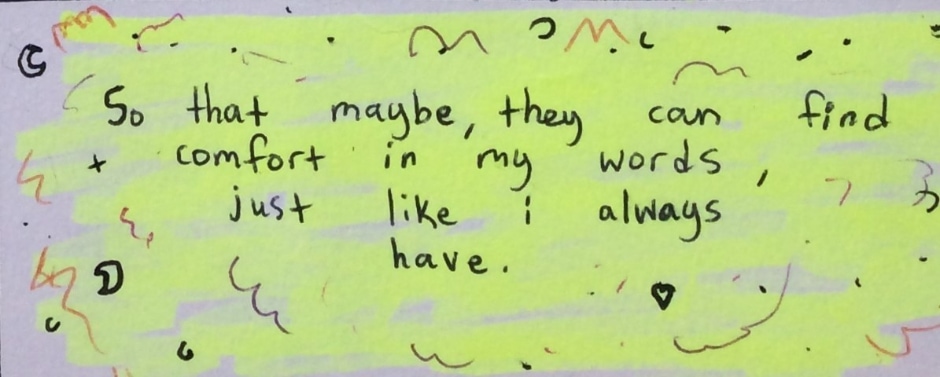 So that maybe, they can find
+ comfort in my words,
just like i always
have.